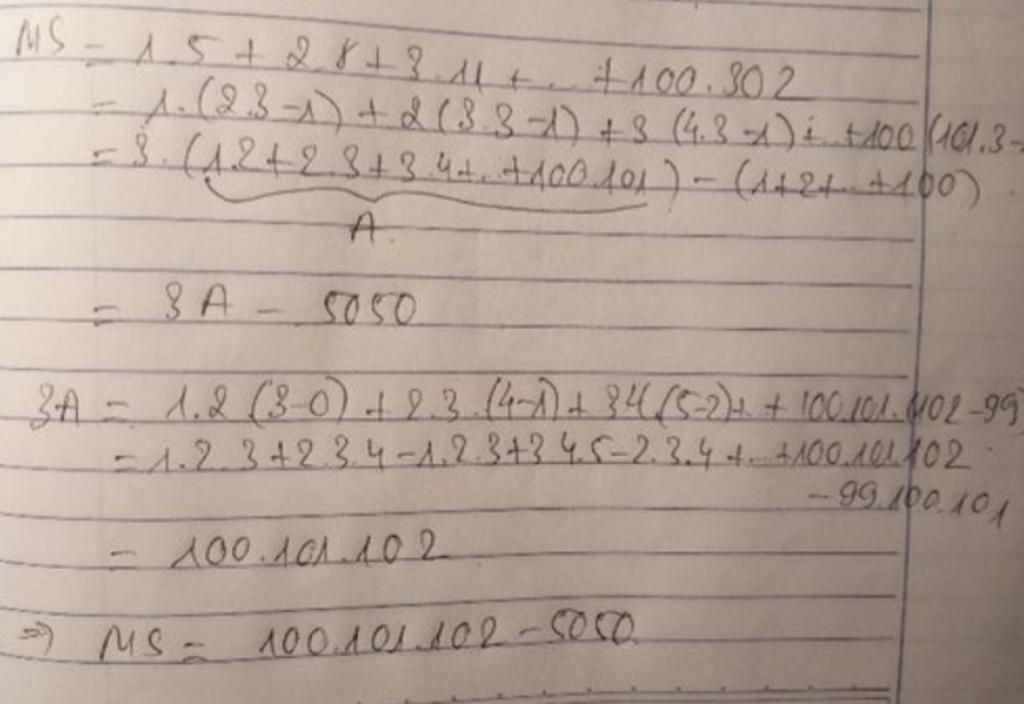 MS = 1.5 + 2.8 + 3.11 + .. + 100.302
= 1.(2.3-1) + 2(3.3-1) + 3(4.3-1) + .. +100(101.3-
= 3.(1.2+2.3+3.4+..+100.101) - (1+2+..+100)
A
= 3A - 5050
3A = 1.2(3-0) + 2.3.(4-1) + 3.4(5-2)+ + 100.101.(102-99)
= 1.2.3+2.3.4-1.2.3+3.4.5-2.3.4+..+100.101.102
-99.100.101
= 100.101.102
⇒ MS = 100.101.102-5050